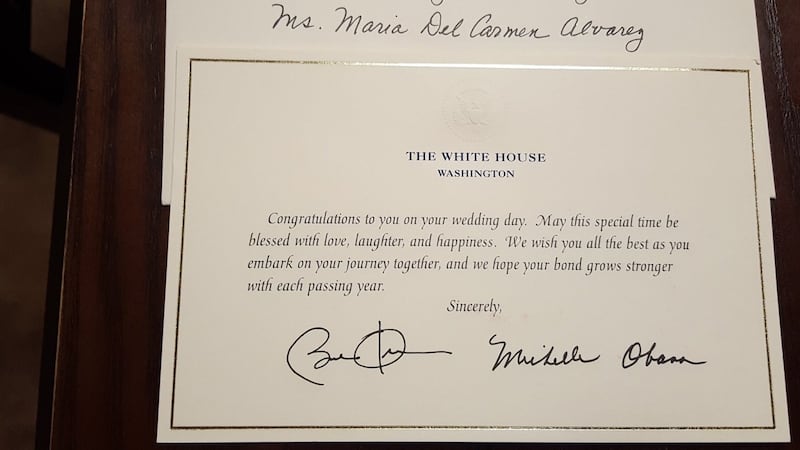 Ms. Maria Del Carmen Alvarez
THE WHITE HOUSE
WASHINGTON
Congratulations to you on your wedding day. May this special time be
blessed with love, laughter, and happiness. We wish you all the best as you
embark on your journey together, and we hope your bond grows stronger
with each passing year.
Sincerely,
Michelle Obama